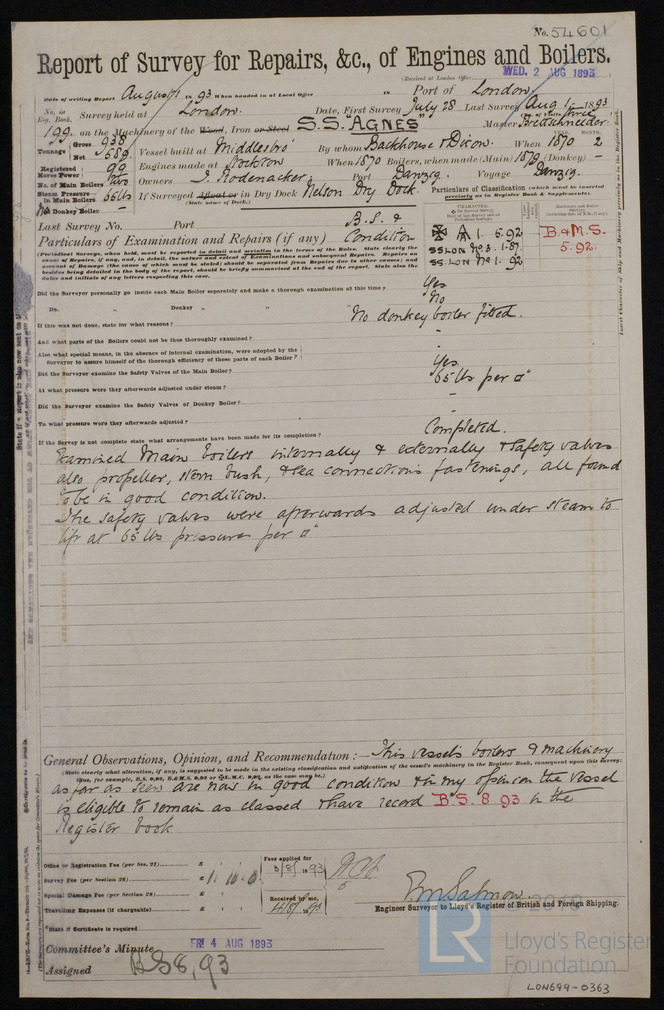 No. 54601
Report of Survey for Repairs, &c., of Engines and Boilers.
(Received at London Office WED. 2 AUG 1893
Date of writing Report August 1 1893 When handed in at Local Office 18 Port of London.
No. in Reg. Book. Survey held at London. Date, First Survey July 28 Last Survey Aug 1 1893
(No. of Visits three)
199 on the Machinery of the Wood, Iron or Steel S.S. "AGNES" Master Brettschneider
Tonnage Gross 938 Net 589 Vessel built at Middlesbro' By whom Backhouse & Dixon. When 1870 2
YEAR. MONTH.
Registered Horse Power 99 Engines made at Stockton When 1870 Boilers, when made (Main) 1879 (Donkey) -
No. of Main Boilers two Owners J. Rodenacker Port Danzig. Voyage Danzig.
Steam Pressure in Main Boilers 65 lbs If Surveyed Afloat or in Dry Dock Nelson Dry Dock.
(State name of Dock.)
No. Donkey Boiler -
Particulars of Classification (which must be inserted precisely as in Register Book & Supplements).
Last Survey No. Port
✠ A 1. 5.92
SS.LON No 3. 1.87.
SS.LON No 1. 92
B.&M.S.
5.92.
Particulars of Examination and Repairs (if any) B.S. & Condition
(Periodical Surveys, when held, must be reported in detail and seriatim in the terms of the Rules. State clearly the
Did the Surveyor personally go inside each Main Boiler separately and make a thorough examination at this time? Yes
Do. Donkey " " " No
If this was not done, state for what reasons? No donkey boiler fitted.
And what parts of the Boilers could not be thus thoroughly examined? -
Also what special means, in the absence of internal examination, were adopted by the
Surveyor to assure himself of the thorough efficiency of those parts of each Boiler? -
Did the Surveyor examine the Safety Valves of the Main Boiler? Yes
At what pressure were they afterwards adjusted under steam? 65 lbs per □"
Did the Surveyor examine the Safety Valves of Donkey Boiler? -
To what pressure were they afterwards adjusted? -
If the Survey is not complete state what arrangements have been made for its completion? Completed.
Examined Main boilers internally & externally & safety valves
also propeller, stern bush, & sea connections fastenings, all found
to be in good condition.
The safety valves were afterwards adjusted under steam to
lift at 65 lbs pressure per □"
General Observations, Opinion, and Recommendation:— This vessels boilers & machinery
(State clearly what alteration, if any, is suggested to be made in the existing classification and notification of the vessel's machinery in the Register Book, consequent upon this survey:
thus, for example, B.S. 9,92, B.&M.S. 9,92 or ✠L.M.C. 9,92, as the case may be.)
as far as seen are now in good condition & in my opinion the vessel
is eligible to remain as classed & have record B.S. 8.93 in the
Register book
Office or Registration Fee (per Sec. 27) £
Survey Fee (per Section 28) £ 1 : 10 : 0
Special Damage Fee (per Section 28) £
Travelling Expenses (if chargeable) £
Fees applied for
3/8/1893
Received by me,
4/8/1893
*State if Certificate is required
Engineer Surveyor to Lloyd's Register of British and Foreign Shipping.
Committee's Minute FRI 4 AUG 1893
Assigned BS 8,93
LR
Lloyd's Register
Foundation
LON699-0363